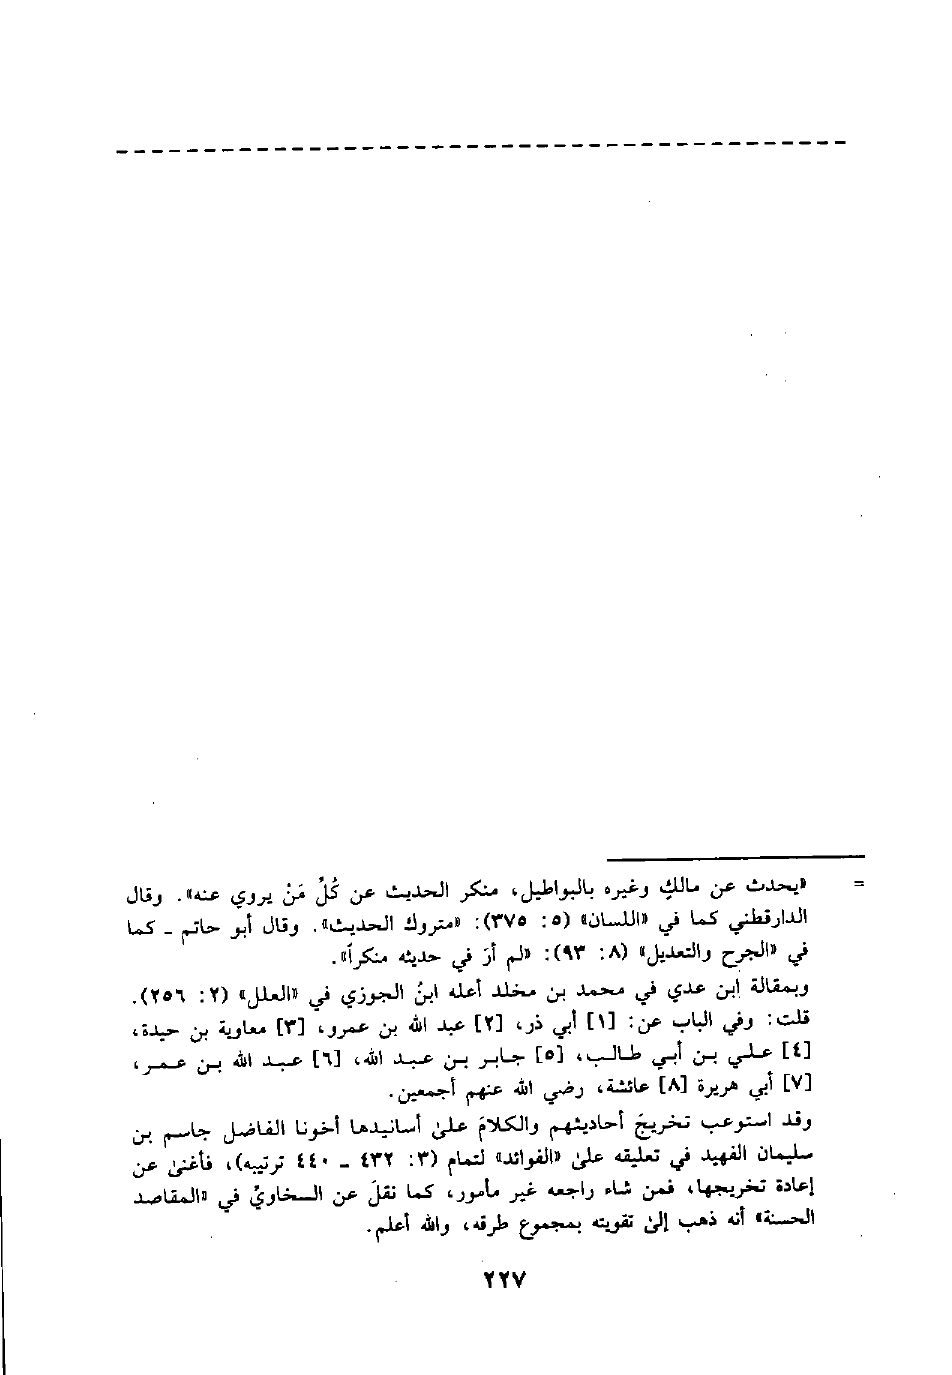 = «يحدث عن مالكٍ وغيره بالبواطيل، منكر الحديث عن كُلِّ مَنْ يروي عنه». وقال
الدارقطني كما في «اللسان» (٥: ٣٧٥): «متروك الحديث». وقال أبو حاتم ـ كما
في «الجرح والتعديل» (٨: ٩٣): «لم أرَ في حديثه منكراً».
وبمقالة ابن عدي في محمد بن مخلد أعله ابنُ الجوزي في «العلل» (٢: ٢٥٦).
قلت: وفي الباب عن: [١] أبي ذر، [٢] عبد الله بن عمرو، [٣] معاوية بن حيدة،
[٤] علي بن أبي طالب، [٥] جابر بن عبد الله، [٦] عبد الله بن عمر،
[٧] أبي هريرة [٨] عائشة، رضي الله عنهم أجمعين.
وقد استوعب تخريجَ أحاديثهم والكلامَ علىٰ أسانيدها أخونا الفاضل جاسم بن
سليمان الفهيد في تعليقه علىٰ «الفوائد» لتمام (٣: ٤٣٢ ـ ٤٤٠ ترتيبه)، فأغنىٰ عن
إعادة تخريجها، فمن شاء راجعه غير مأمور، كما نقلَ عن السخاويِّ في «المقاصد
الحسنة» أنه ذهب إلىٰ تقويته بمجموع طرقه، والله أعلم.
٢٢٧